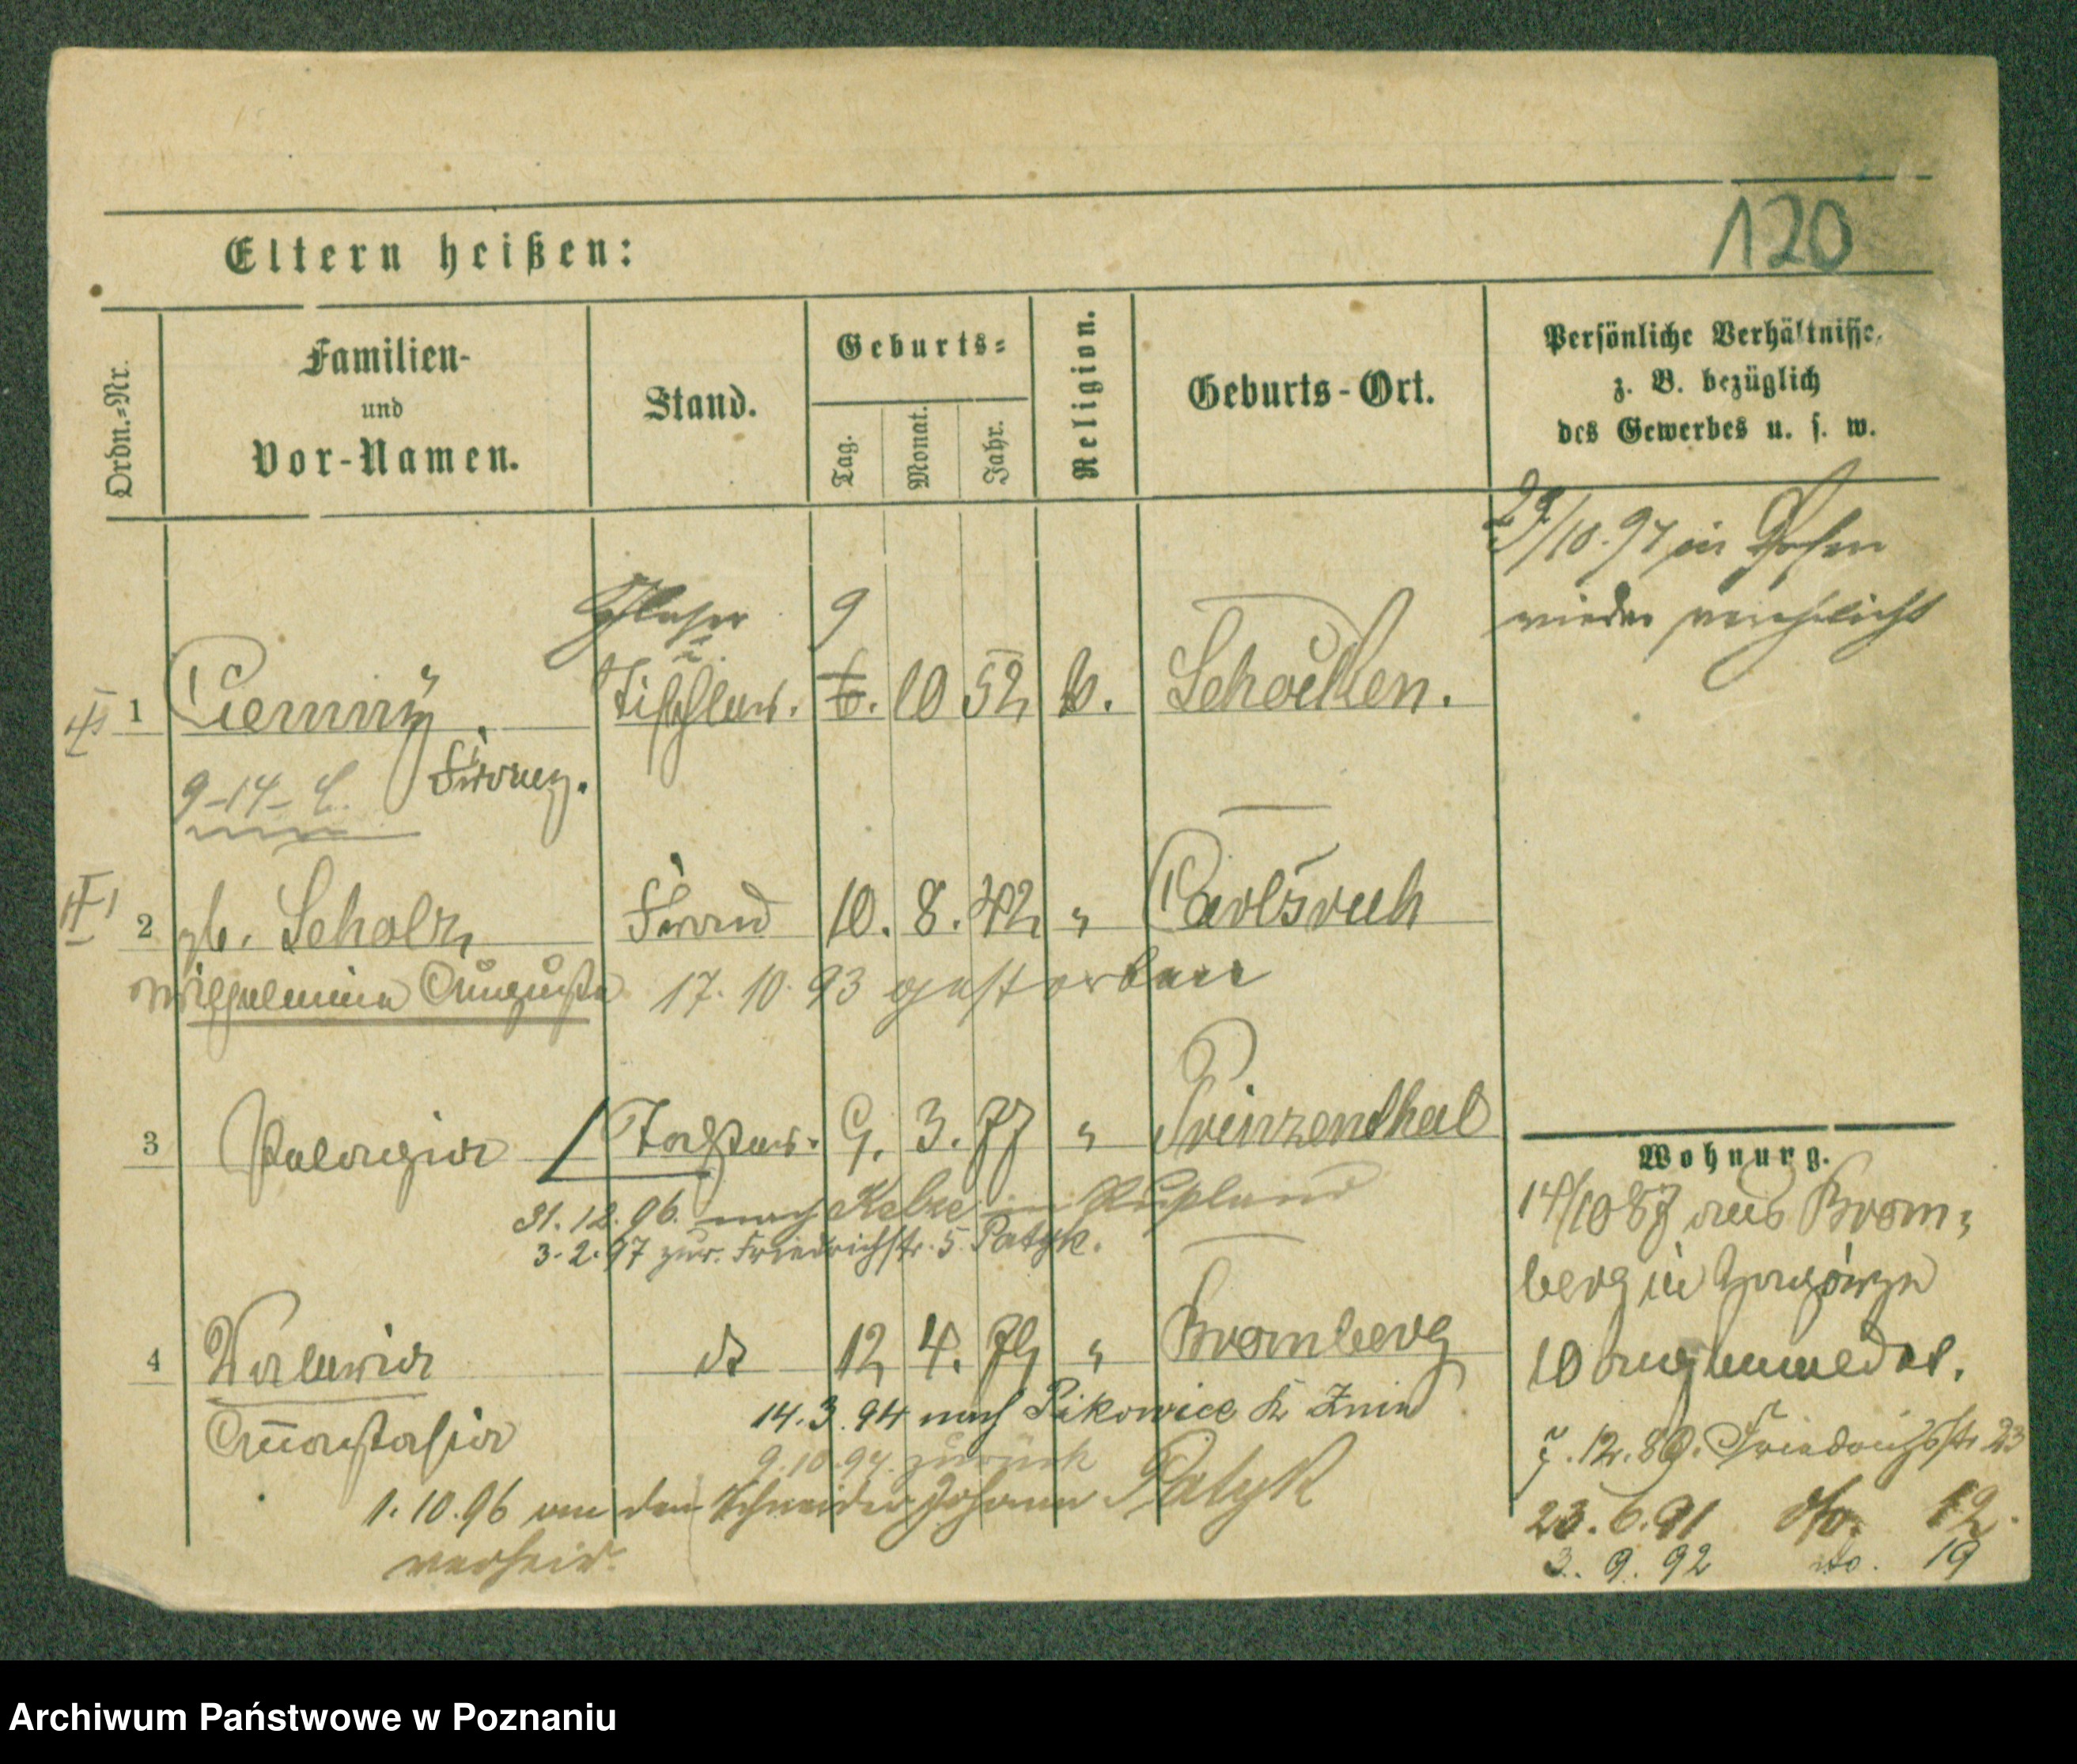 120
Eltern heißen:
Ordn.-Nr.
Familien-
und
Vor-Namen.
Stand.
Geburts-
Tag.
Monat.
Jahr.
Religion.
Geburts-Ort.
Persönliche Verhältnisse,
z. B. bezüglich
des Gewerbes u. s. w.
/10. 97 in Posen
wieder verehelicht
Glaser 9
u.
1 Ciemny Tischler. 6. 10 52 k. Schocken.
Franz.
9-14-
2 gb. Scholz Frau 10. 8. 42 " Carlsruh
Wilhelmine Auguste 17. 10. 93 gestorben
3 Pelagia Tochter. 9. 3. 77 " Prinzenthal
31. 12. 96. nach in Rußland
3. 2. 97 zur. Friedrichstr. 5 Patyk.
4 Valeria do 12 4. 79 " Bromberg
Anastasia 14. 3. 94 nach Pikowice Kr Znin
9. 10. 94. zurück
1. 10. 96 an den Schneider Johann Patyk
verheir.
Wohnung.
14/10 87 aus Brom=
berg in Zagórze
10 angemeldet.
7. 12. 89. Friedrichstr. 23
23. 6. 91 do. 12.
3. 9. 92 do. 19
Archiwum Państwowe w Poznaniu